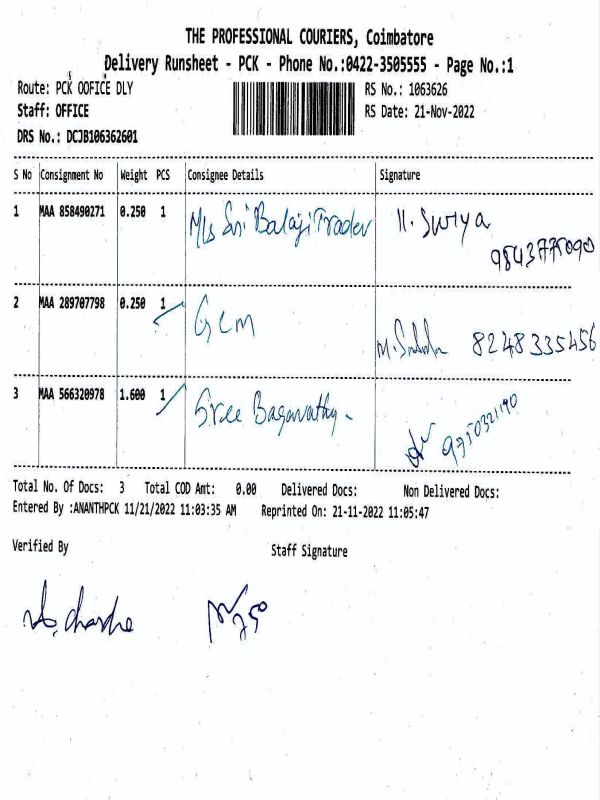 THE PROFESSIONAL COURIERS, Coimbatore
Delivery Runsheet - PCK - Phone No.:0422-3505555 - Page No.:1
Route: PCK OOFICE DLY
RS No.: 1063626
Staff: OFFICE
RS Date: 21-Nov-2022
DRS No.: DCJB106362601
S No Consignment No Weight PCS Consignee Details Signature
1 MAA 858490271 0.250 1 M/s Sri Balaji Trader H. Surya
9843775090
2 MAA 289707798 0.250 1 GCM
M. 8248335456
3 MAA 566320978 1.600 1 Sree Bagavathy.
9750321190
Total No. Of Docs: 3 Total COD Amt: 0.00 Delivered Docs: Non Delivered Docs:
Entered By :ANANTHPCK 11/21/2022 11:03:35 AM Reprinted On: 21-11-2022 11:05:47
Verified By Staff Signature